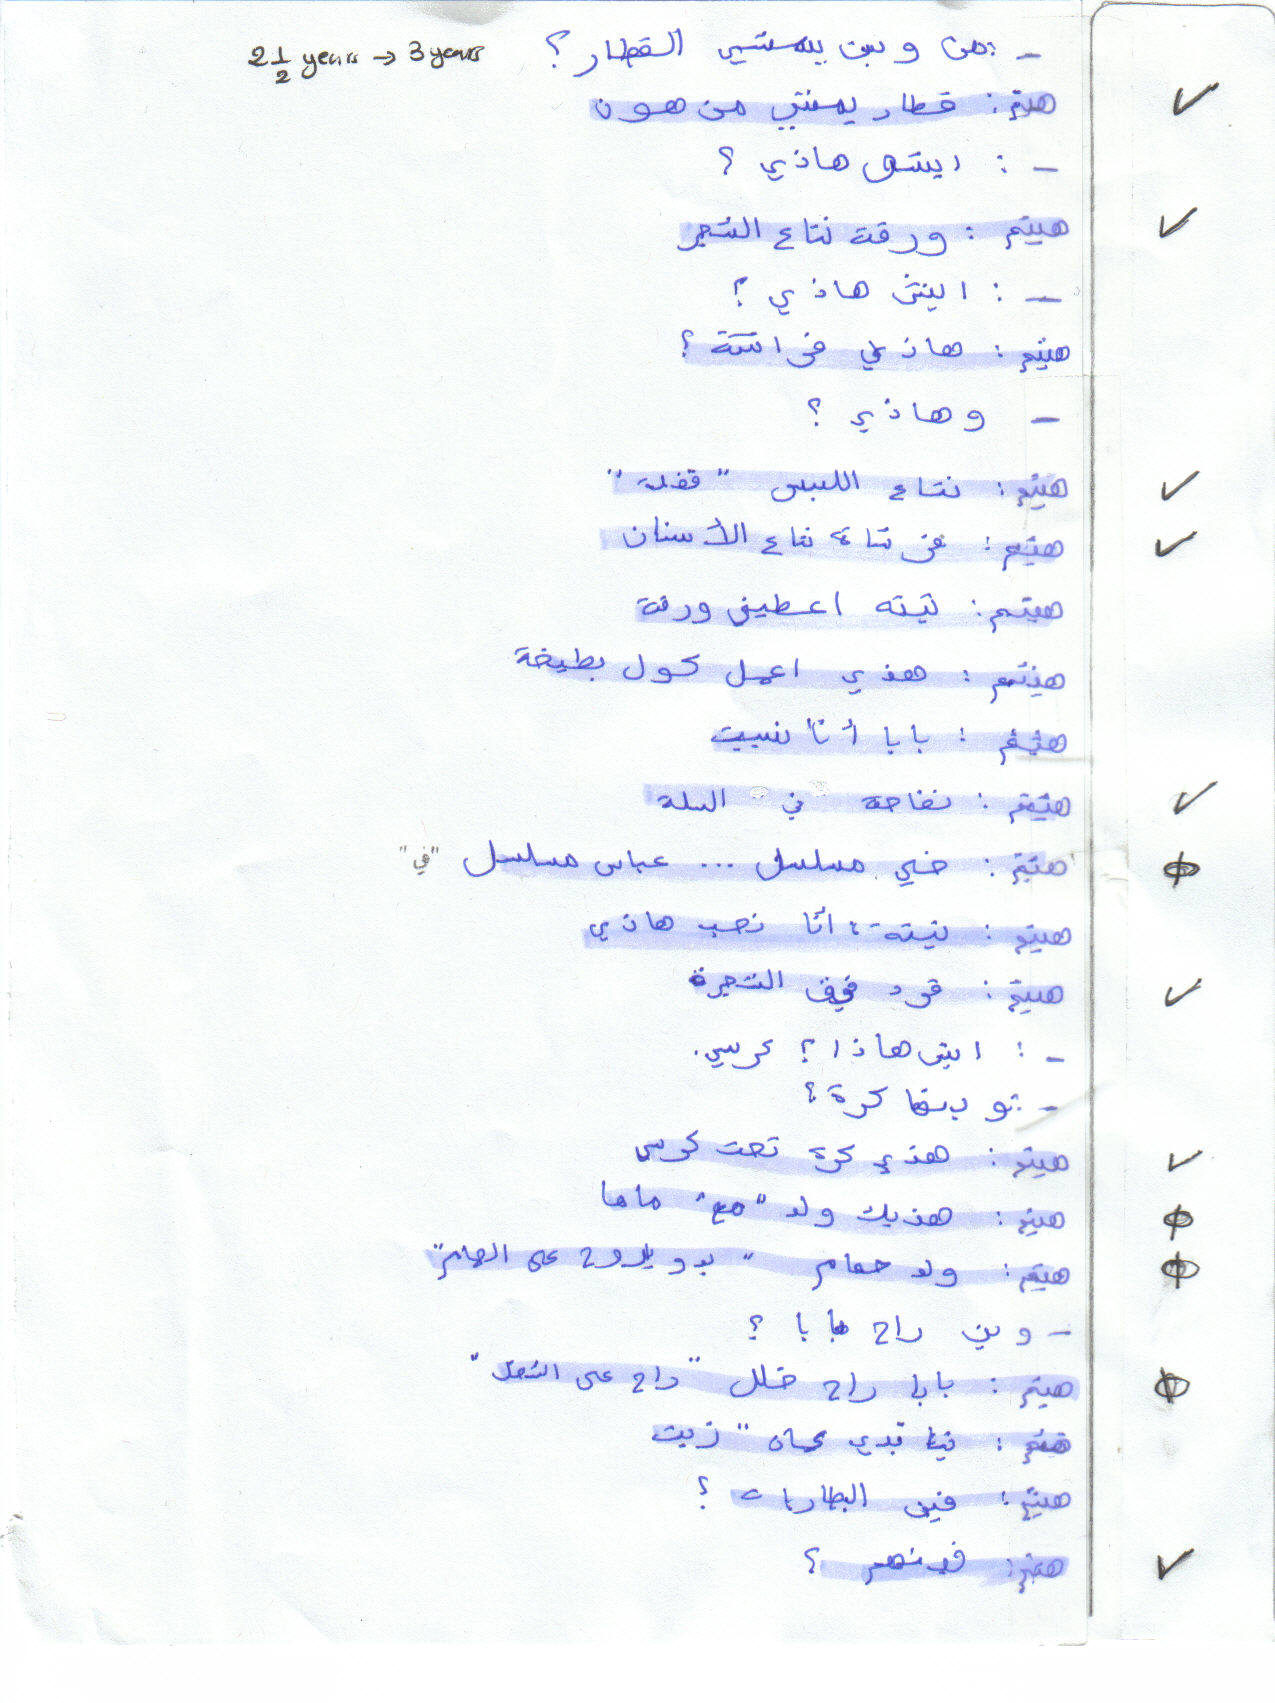 - : من وين يمشي القطار ؟ 2 1/2 years → 3 years
هيثم : قطار يمشي من هون
- : ايش هاذي ؟
هيثم : ورقة نتاع الشجر
- : ايش هاذي ؟
هيثم : هاذي فراشة ؟
- وهاذي ؟
هيثم : نتاع اللبس "
هيثم : نتاع الأسنان
هيثم : تيته اعطيني ورقة
هيثم : هذي اعمل كول بطيخة
هيثم : بابا أنا نسيت
هيثم : تفاحة " في " السلة
هيثم : خيي مسلسل ... عباس مسلسل "في"
هيثم : تيتة ، أنا نحب هاذي
هيثم : قرد فوق الشجرة
- : ايش هاذا ؟ كرسي .
- : كرة ؟
هيثم : هذي كرة تحت كرسي
هيثم : هذيك ولد "مع" ماما
هيثم : ولد حمام " بدو يروح على الحمام "
- وين راح بابا ؟
هيثم : بابا راح " راح على الشغل "
هيثم : زيت
هيثم : فين البطاريات ؟
هيثم : فينهم ؟